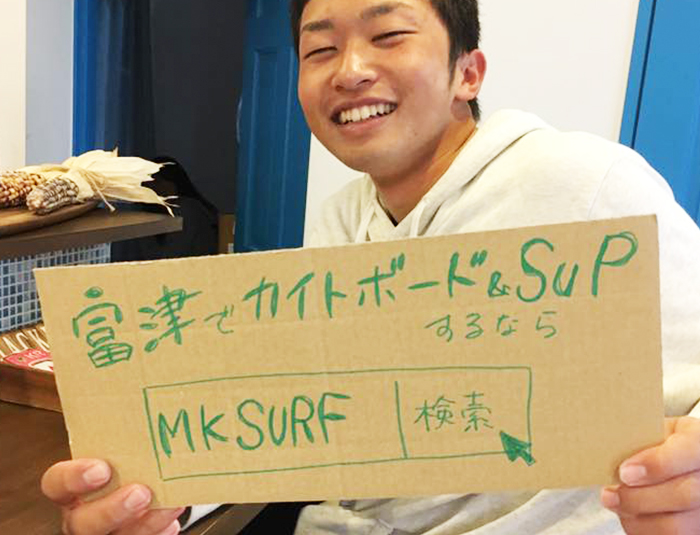 富津でカイトボード&SUP
するなら
MKSURF 検索